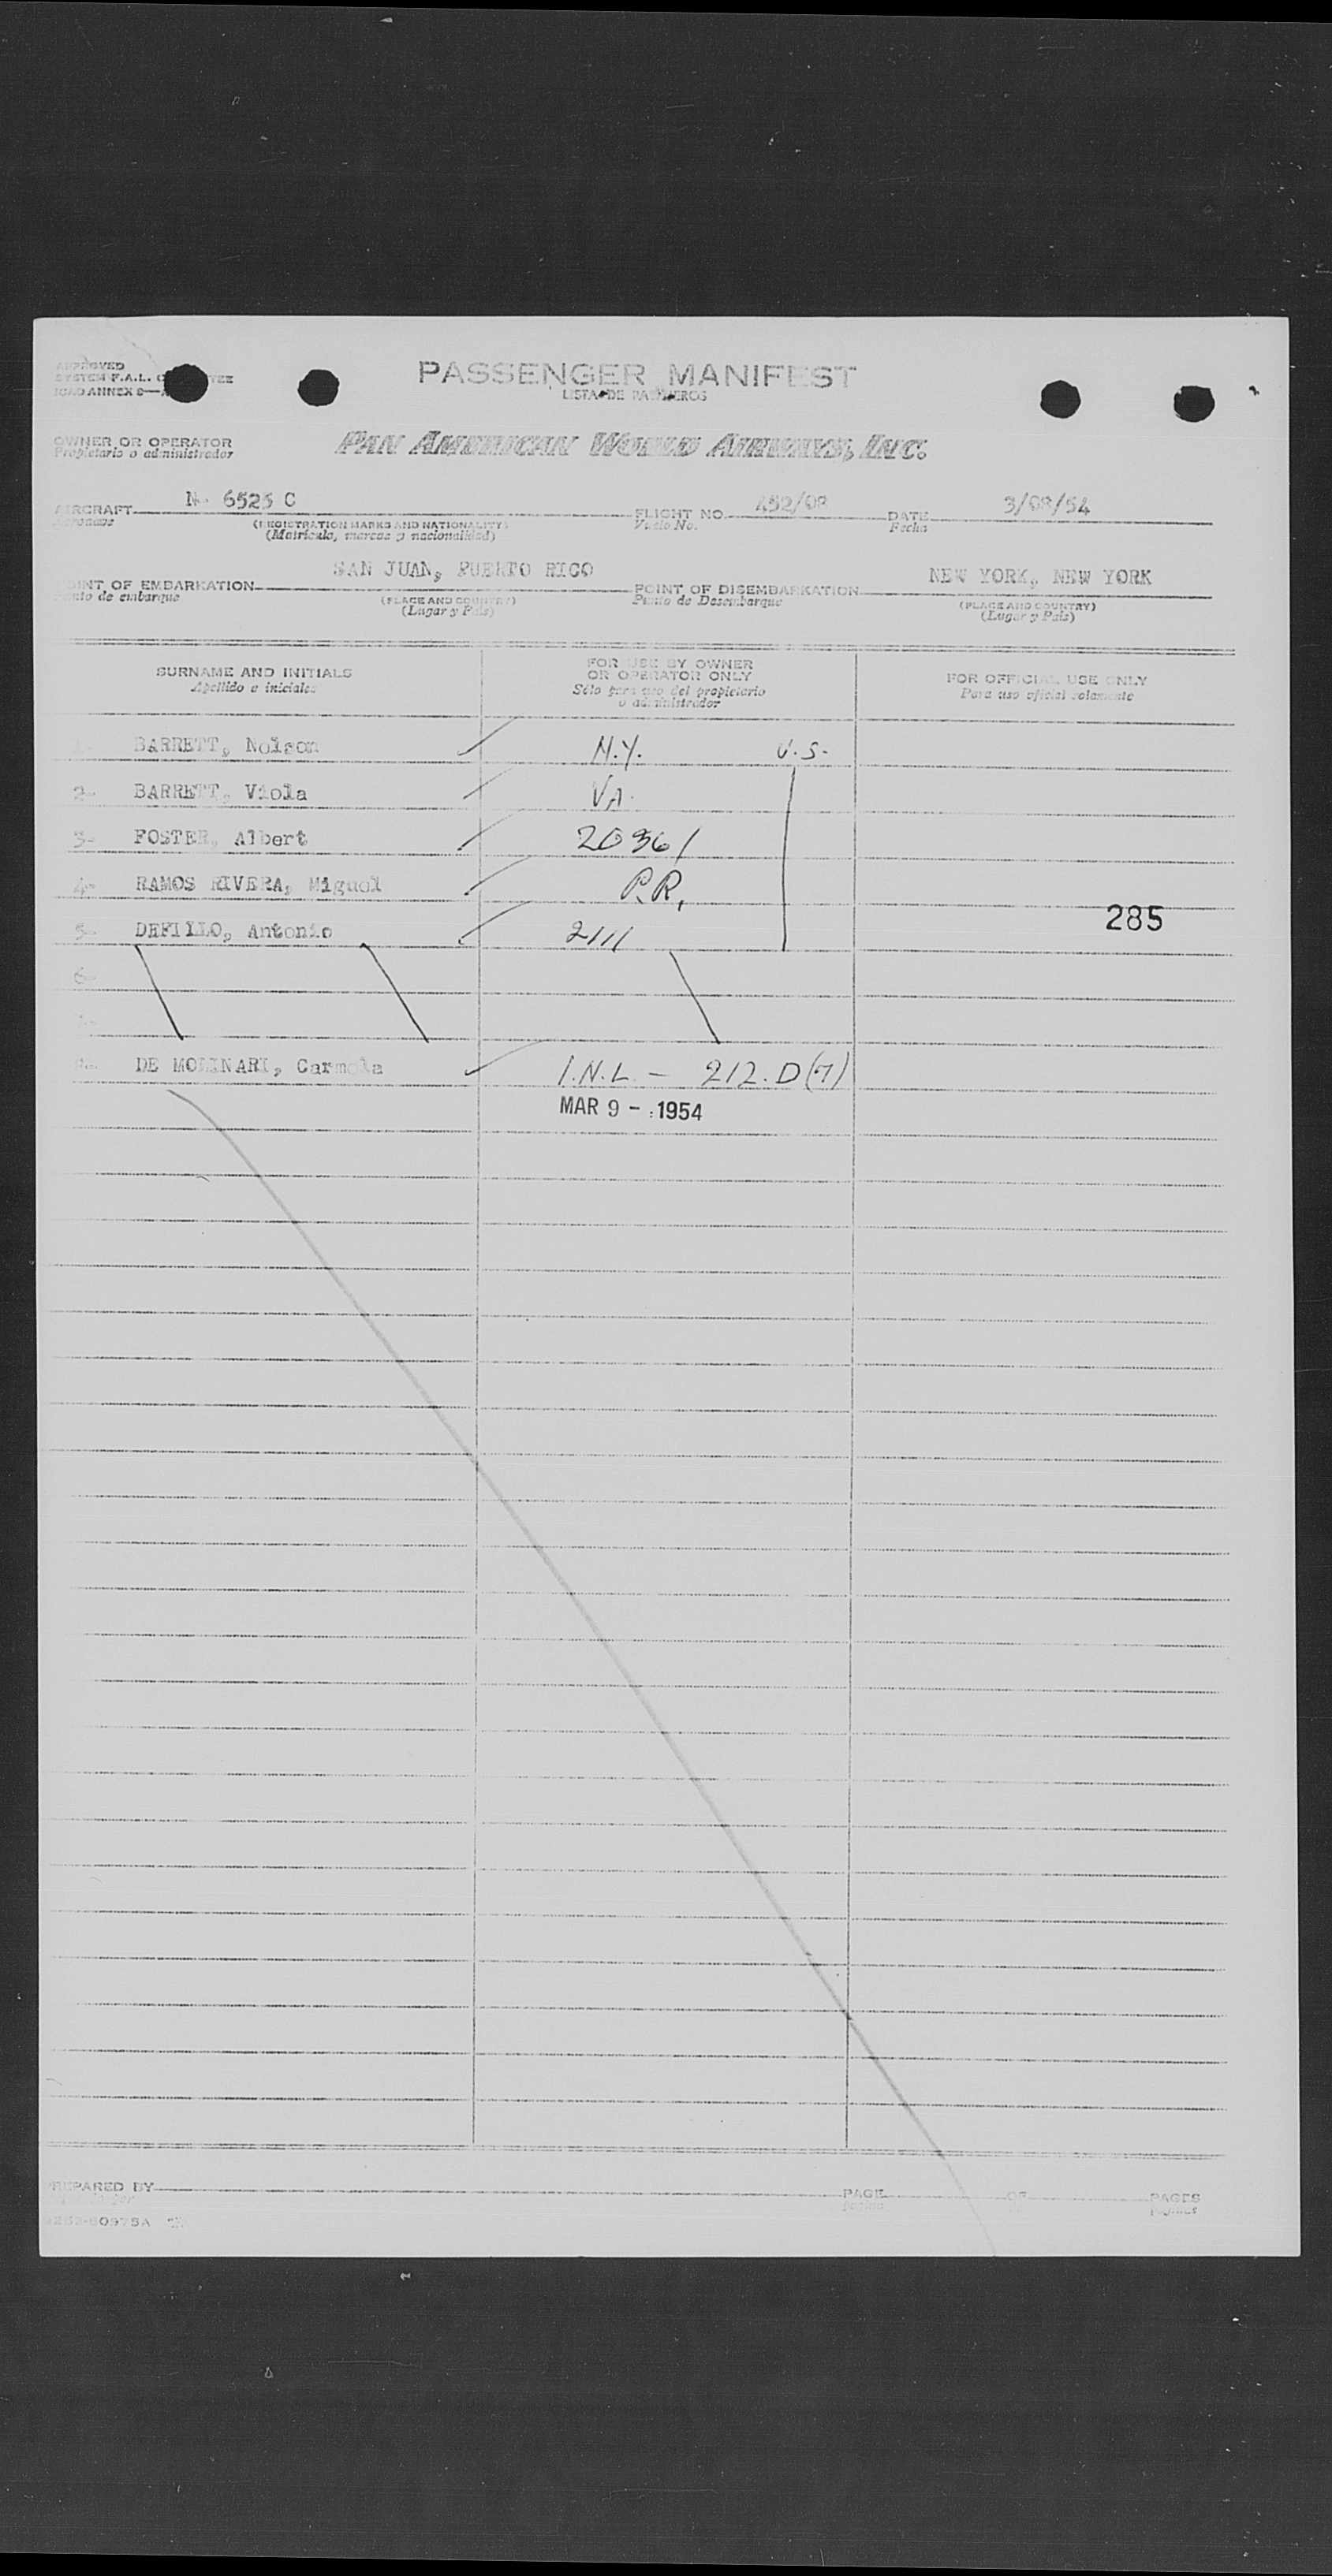 APPROVED PASSENGER MANIFEST
SYSTEM F.A.L. LISTA DE PASAJEROS
ICAO ANNEX 9—
OWNER OR OPERATOR PAN AMERICAN WORLD AIRWAYS, INC.
Propietario o administrador
AIRCRAFT N- 6523 C FLIGHT NO. 452/08 DATE 3/08/54
Aeronave (REGISTRATION MARKS AND NATIONALITY) Vuelo No. Fecha
(Matricula, marcas y nacionalidad)
POINT OF EMBARKATION SAN JUAN, PUERTO RICO POINT OF DISEMBARKATION NEW YORK, NEW YORK
Punto de embarque (PLACE AND COUNTRY) Punto de Desembarque (PLACE AND COUNTRY)
(Lugar y Pais) (Lugar y Pais)
SURNAME AND INITIALS FOR USE BY OWNER OR OPERATOR ONLY FOR OFFICIAL USE ONLY
Apellido e iniciales Sólo para uso del propietario o administrador Para uso oficial solamente
1- BARRETT, Nelson N.Y. U.S.
2- BARRETT, Viola VA.
3- FOSTER, Albert 20361
4- RAMOS RIVERA, Miguel P.R.
5- DEFILLO, Antonio 2111 285
6-
7-
DE MOLINARI, Carmela I.N.L. - 212.D(7)
MAR 9 - 1954
PREPARED BY PAGE OF PAGES